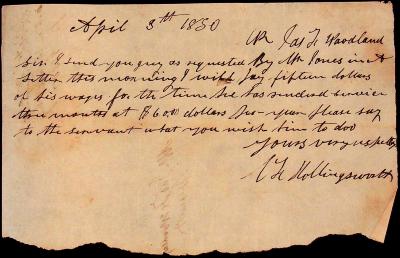 April 3th 1830
Mr Jas H Woodland
Sir I send you guy as requested By Mr Jones in A
Letter this morning I will pay fifteen dollars
of his wages for the time he has rendered service
three months at $60.00 dollars per year Please say
to the servant what you wish him to doo
Yours very respectfly
Hollingsworth